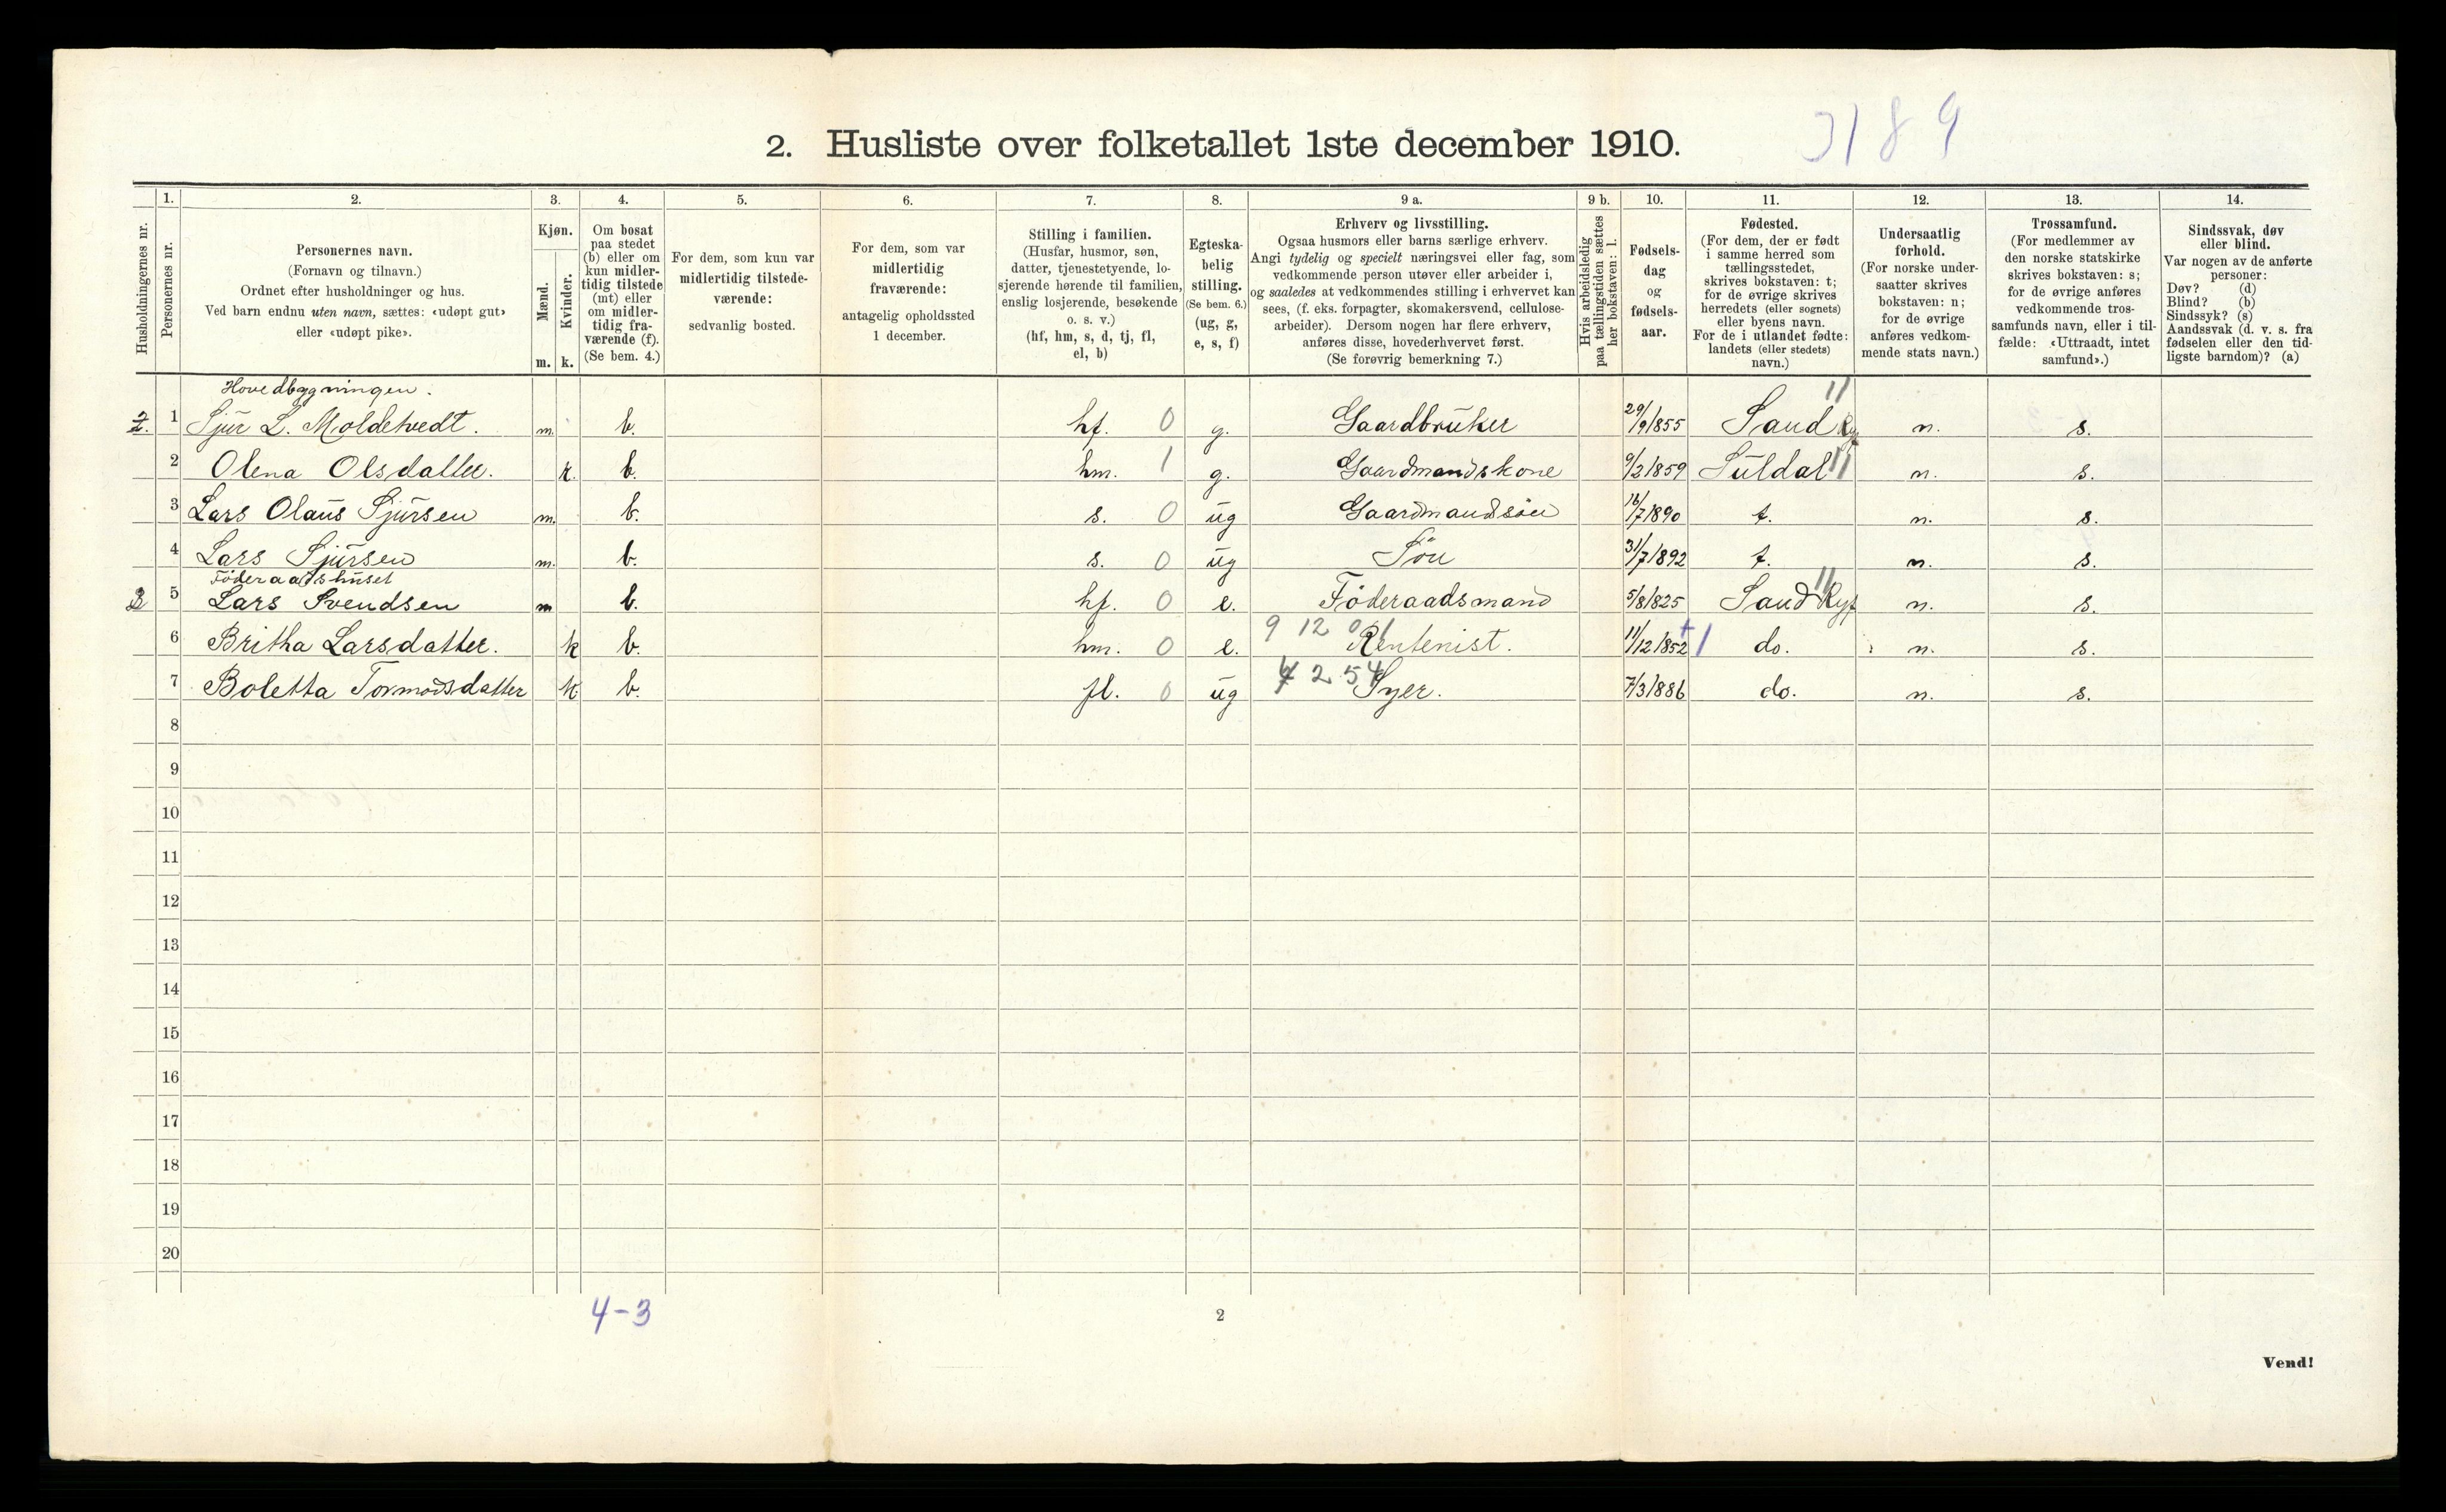 3189
2. Husliste over folketallet 1ste december 1910.
Husholdningernes nr.
1. Personernes nr.
2. Personernes navn.
(Fornavn og tilnavn.)
Ordnet efter husholdninger og hus.
Ved barn endnu uten navn, sættes: «udøpt gut»
eller «udøpt pike».
3. Kjøn.
Mænd. m.
Kvinder. k.
4. Om bosat
paa stedet
(b) eller om
kun midler-
tidig tilstede
(mt) eller
om midler-
tidig fra-
værende (f).
(Se bem. 4.)
5. For dem, som kun var
midlertidig tilstede-
værende:
sedvanlig bosted.
6. For dem, som var
midlertidig
fraværende:
antagelig opholdssted
1 december.
7. Stilling i familien.
(Husfar, husmor, søn,
datter, tjenestetyende, lo-
sjerende hørende til familien,
enslig losjerende, besøkende
o. s. v.)
(hf, hm, s, d, tj, fl,
el, b)
8. Egteska-
belig
stilling.
(Se bem. 6.)
(ug, g,
e, s, f)
9 a. Erhverv og livsstilling.
Ogsaa husmors eller barns særlige erhverv.
Angi tydelig og specielt næringsvei eller fag, som
vedkommende person utøver eller arbeider i,
og saaledes at vedkommendes stilling i erhvervet kan
sees, (f. eks. forpagter, skomakersvend, cellulose-
arbeider). Dersom nogen har flere erhverv,
anføres disse, hovederhvervet først.
(Se forøvrig bemerkning 7.)
9 b. Hvis arbeidsledig
paa tællingstiden sættes
her bokstaven: l.
10. Fødsels-
dag
og
fødsels-
aar.
11. Fødested.
(For dem, der er født
i samme herred som
tællingsstedet,
skrives bokstaven: t;
for de øvrige skrives
herredets (eller sognets)
eller byens navn.
For de i utlandet fødte:
landets (eller stedets)
navn.)
12. Undersaatlig
forhold.
(For norske under-
saatter skrives
bokstaven: n;
for de øvrige
anføres vedkom-
mende stats navn.)
13. Trossamfund.
(For medlemmer av
den norske statskirke
skrives bokstaven: s;
for de øvrige anføres
vedkommende tros-
samfunds navn, eller i til-
fælde: «Uttraadt, intet
samfund».)
14. Sindssvak, døv
eller blind.
Var nogen av de anførte
personer:
Døv? (d)
Blind? (b)
Sindssyk? (s)
Aandssvak (d. v. s. fra
fødselen eller den tid-
ligste barndom)? (a)
Hovedbygningen.
1 Sjur L. Moldetvedt. m. b. hf. 0 g. Gaardbruker 29/9 1855 Sand Ryf 11 n. s.
2 Olena Olsdatter. k. b. hm. 1 g. Gaardmandskone 9/2 1859 Suldal 11 n. s.
3 Lars Olaus Sjursen m. b. s. 0 ug Gaardmandsøn 16/7 1890 t. n. s.
4 Lars Sjursen m. b. s. 0 ug Søn 31/7 1892 t. n. s.
Föderaadshuset
5 Lars Svendsen m b. hf. 0 e. Føderaadsmand 5/8 1825 Sand Ryf 11 n. s.
6 Britha Larsdatter. k b. hm. 0 e. Rentenist. 9 12 0 11/12 1852 do. n. s.
7 Boletta Tormodsdatter k b. fl. 0 ug Syer. 254 7/3 1886 do. n. s.
8
9
10
11
12
13
14
15
16
17
18
19
20
4-3
2
Vend!